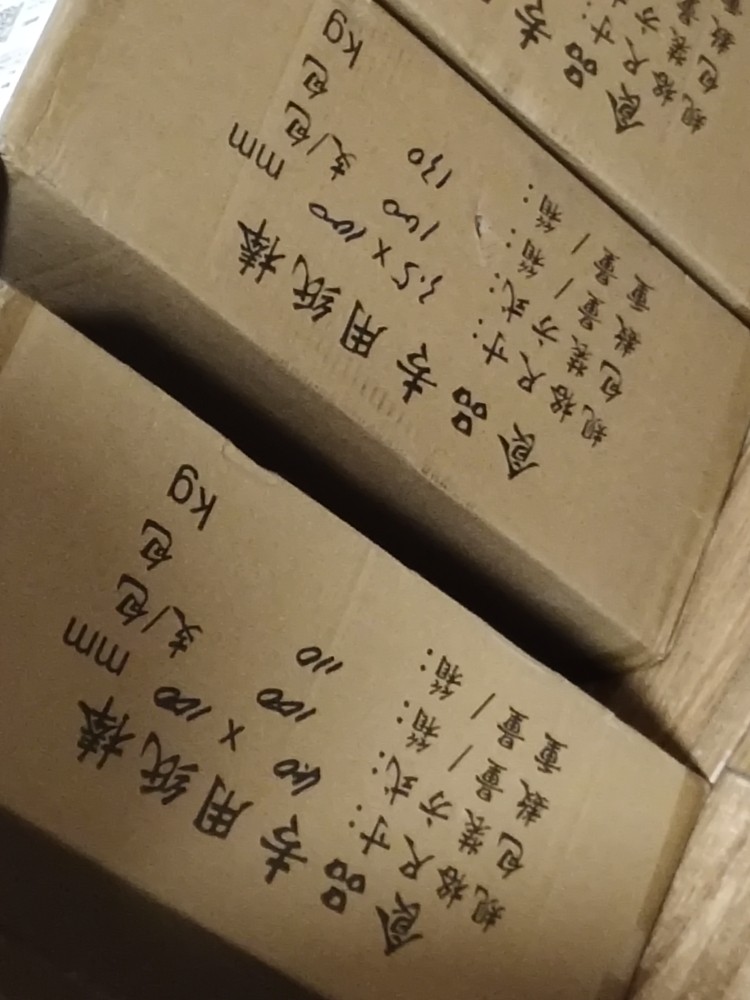 食品专
规格尺寸:
包装方
数量
食品专用纸棒
规格尺寸: 3.5 x 100 mm
包装方式: 100 支/包
数量/箱: 130 包
重量/箱: kg
食品专用纸棒
规格尺寸: 4.0 x 100 mm
包装方式: 100 支/包
数量/箱: 110 包
重量/箱: kg